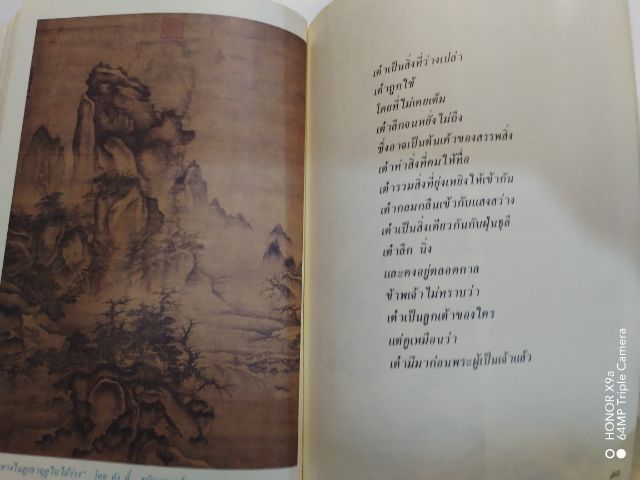 เต๋าเป็นสิ่งที่ว่างเปล่า
เต๋าถูกใช้
โดยที่ไม่เคยเต็ม
เต๋าลึกจนหยั่งไม่ถึง
ซึ่งอาจเป็นต้นเค้าของสรรพสิ่ง
เต๋าทำสิ่งที่คมให้ทื่อ
เต๋ารวมสิ่งที่ยุ่งเหยิงให้เข้ากัน
เต๋ากลมกลืนเข้ากับแสงสว่าง
เต๋าเป็นสิ่งเดียวกันกับฝุ่นธุลี
เต๋าลึก นิ่ง
และคงอยู่ตลอดกาล
ข้าพเจ้าไม่ทราบว่า
เต๋าเป็นลูกเต้าของใคร
แต่ดูเหมือนว่า
เต๋ามีมาก่อนพระผู้เป็นเจ้าแล้ว
HONOR X9a
64MP Triple Camera